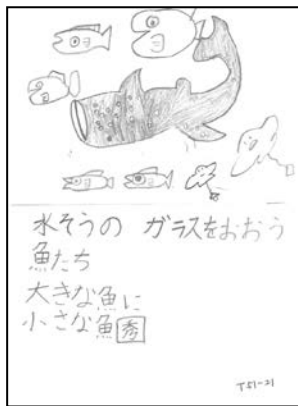 水そうの ガラスをおおう
魚たち
大きな魚に
小さな魚 秀
T51-21